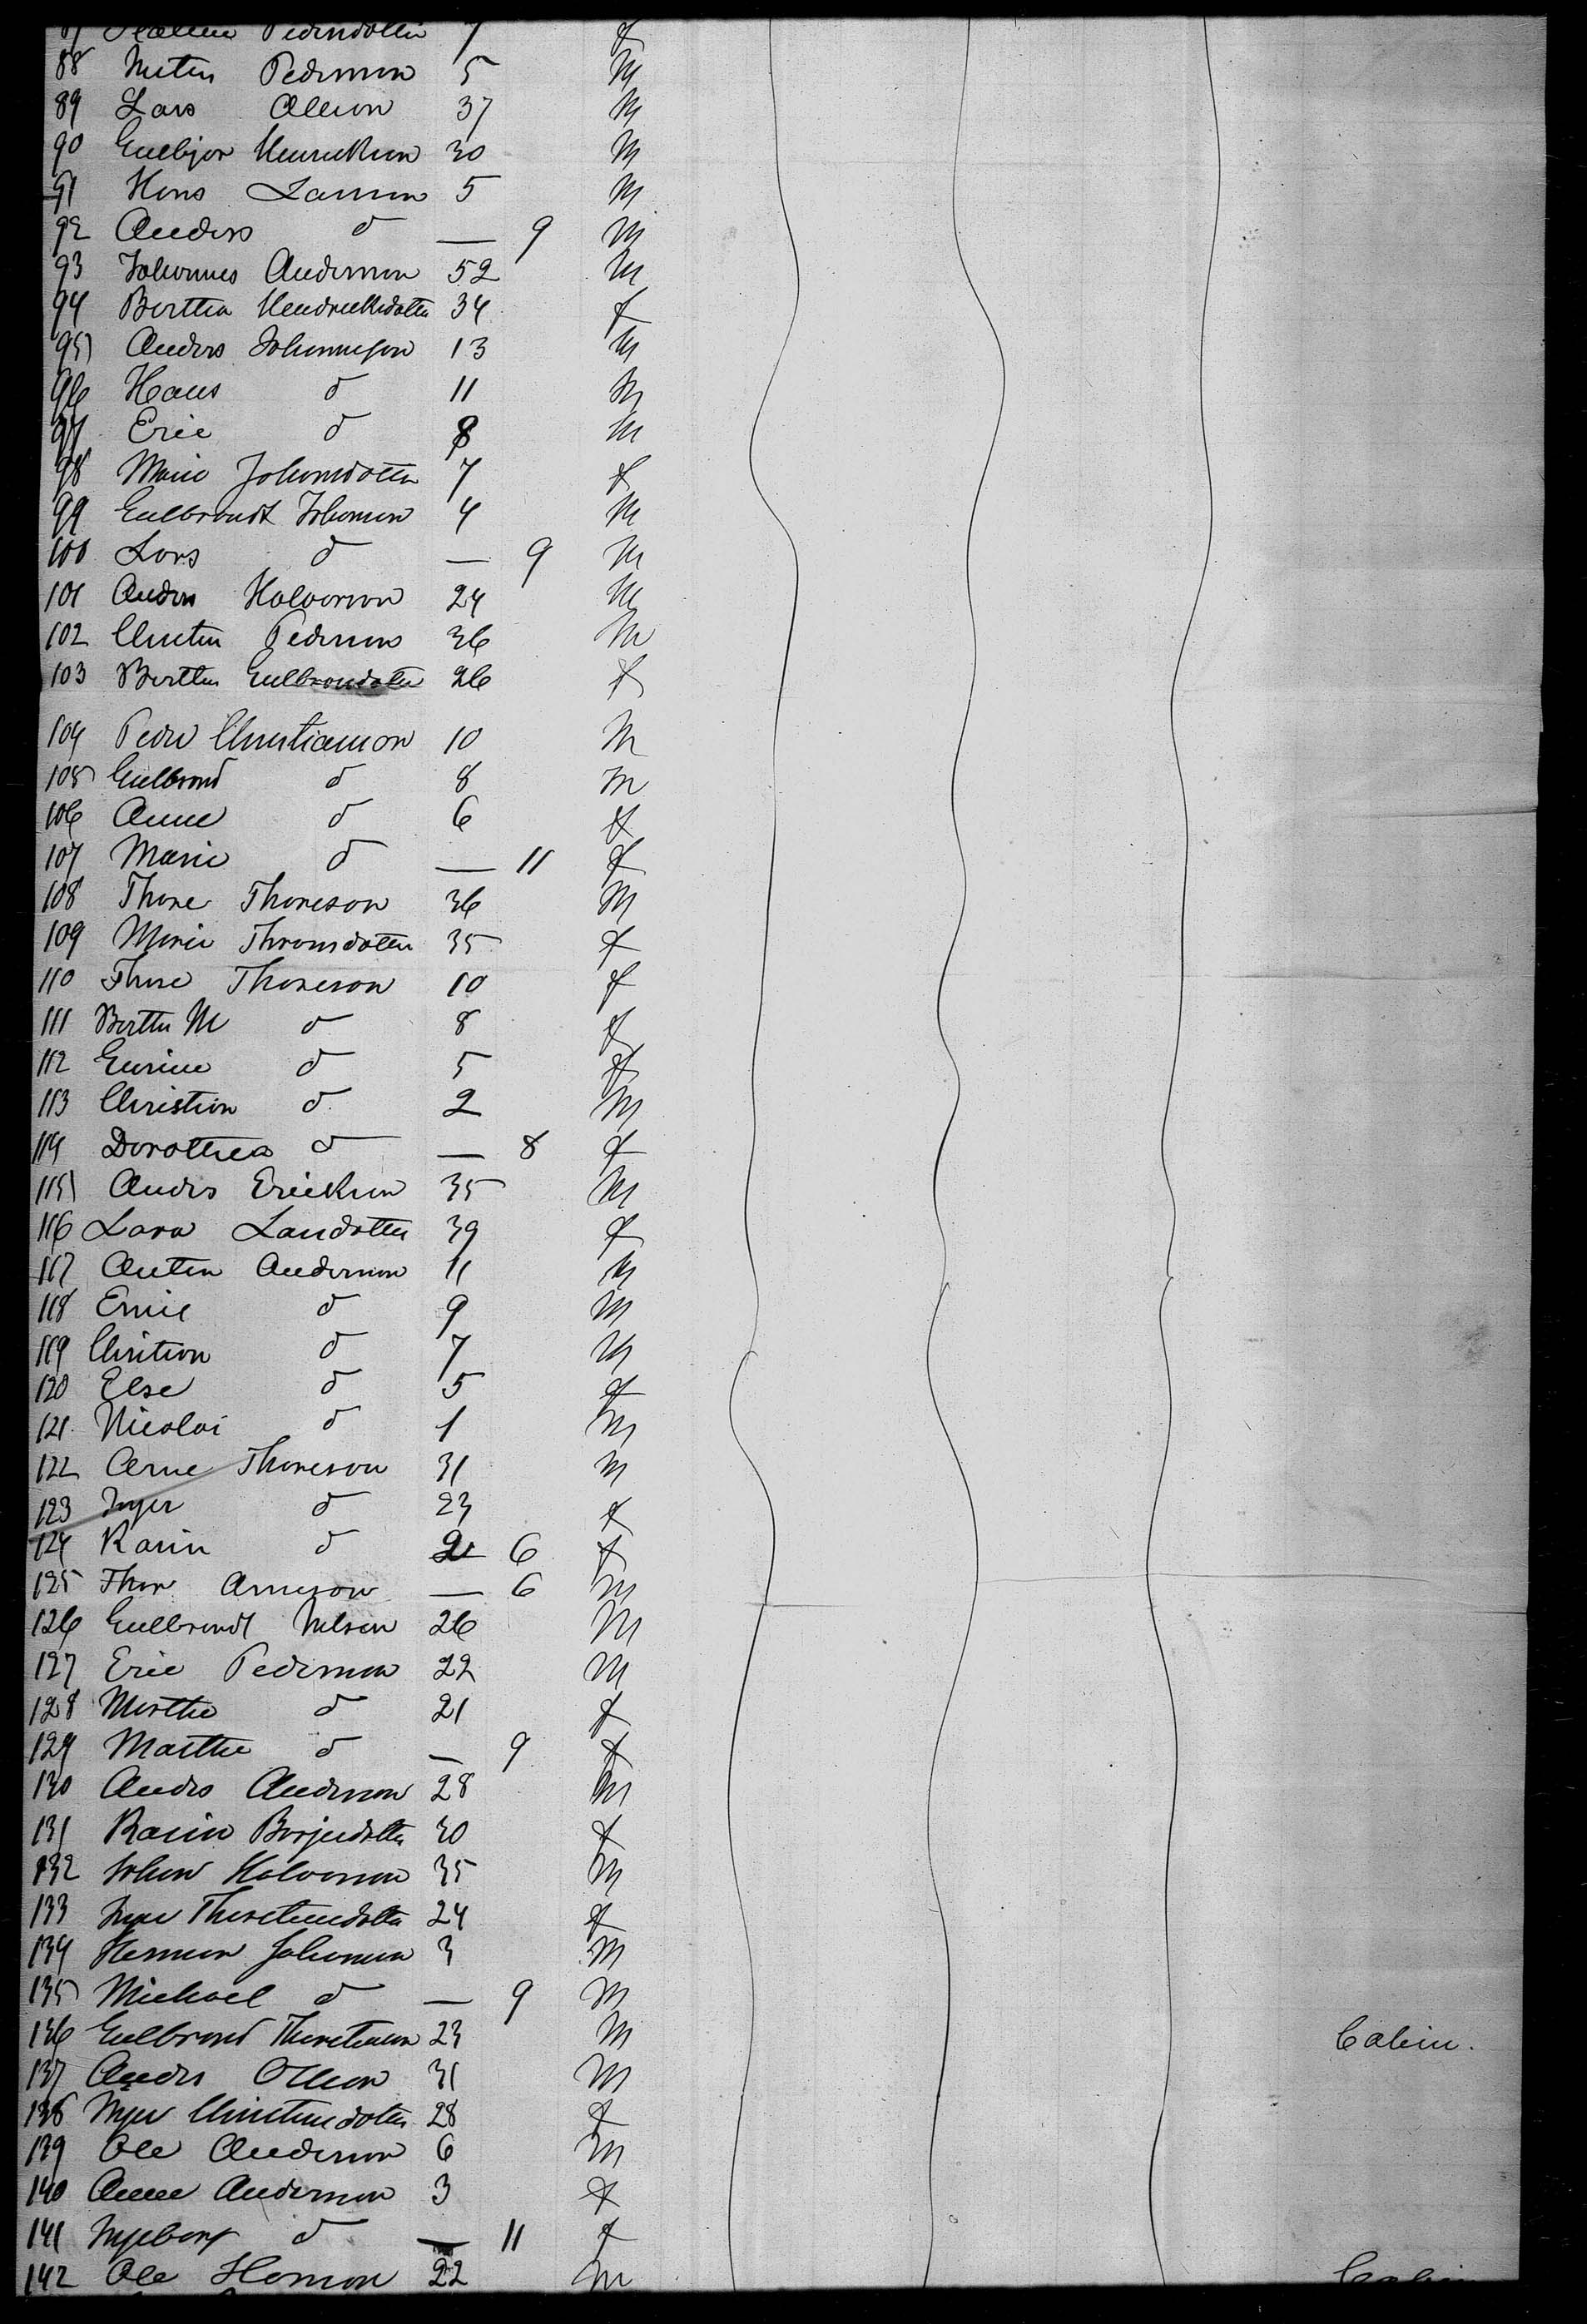 87 Pedersdotter 7 f
88 Pederson 5 M
89 Lars Oleson 37 M
90 Gulbjor Henrickson 30 M
91 Hans Larson 5 M
92 Anders d — 9 M
93 Johannes Anderson 52 M
94 Bertha Hendricksdotter 34 f
95 Anders Johanneson 13 M
96 Hans d 11 M
97 Eric d 8 M
98 Marie Johansdotter 7 f
99 Gulbrandt Johanson 4 M
100 Lars d — 9 M
101 Anders Halvorson 24 M
102 Christen Pederson 36 M
103 Berthe Gulbrandotter 26 f
104 Peder Christianson 10 M
105 Gulbrand d 8 M
106 Anne d 6 f
107 Marie d — 11 f
108 Thore Thoreson 36 M
109 Marie Thronsdotter 35 f
110 Thore Thoreson 10 f
111 Berthe M d 8 f
112 d 5 f
113 Christian d 2 M
114 Dorothea d — 8 f
115 Anders Erickson 35 M
116 Lara Larsdotter 39 f
117 Anten Anderson 11 M
118 d 9 M
119 Christian d 7 M
120 Else d 5 f
121 Nicolai d 1 M
122 Arne Thoreson 31 M
123 Inger d 23 f
124 Karin d 2 6 f
125 Thor Arneson — 6 M
126 Gulbrandt Nelson 26 M
127 Eric Pederson 22 M
128 Marthe d 21 f
129 Marthe d — 9 f
130 Anders Anderson 28 M
131 Karin 30 f
132 Johan Halvorson 35 M
133 Inger 24 f
134 Herman Johanson 3 M
135 Michael d — 9 M
136 Gulbrand 23 M Cabin.
137 Anders Olleson 31 M
138 Inger Christensdotter 28 f
139 Ole Anderson 6 M
140 Anne Anderson 3 f
141 Ingeborg d — 11 f
142 Ole Hanson 22 M Cabin